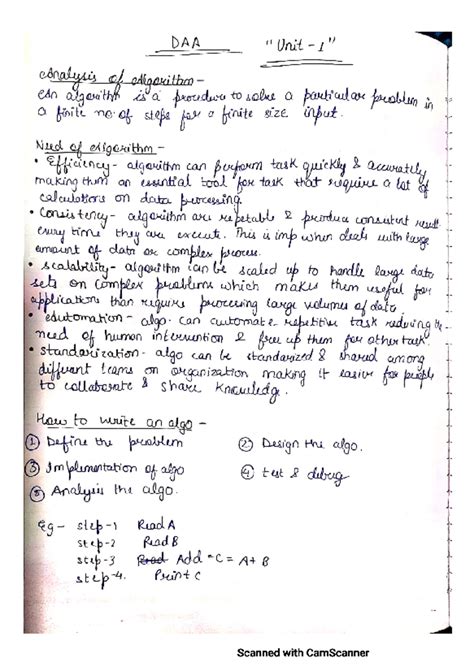 DAA "Unit - 1"
Analysis of Algorithm -
An algorithm is a procedure to solve a particular problem in
a finite no. of steps for a finite size input.
Need of Algorithm -
• Efficiency - algorithm can perform task quickly & accurately
making them an essential tool for task that require a lot of
calculations or data processing.
• Consistency - algorithm are repetable & produce consistent result
every time they are execute. This is imp when deals with large
amount of data or complex process.
• Scalability - algorithm can be scaled up to handle large data
sets or complex problems which makes them useful for
application than require processing large volumes of data.
• Automation - algo. can automate repetitive task reducing the
need of human intervention & free up them for other task
• Standarization - algo can be standarized & shared among
different teams or organization making it easier for people
to collaborate & share knowledge.
How to write an algo -
① Define the problem ② Design the algo.
③ Implementation of algo ④ test & debug
⑤ Analysis the algo.
Eg - step-1 Read A
step-2 Read B
step-3 Read Add C = A + B
step-4. Print C
Scanned with CamScanner